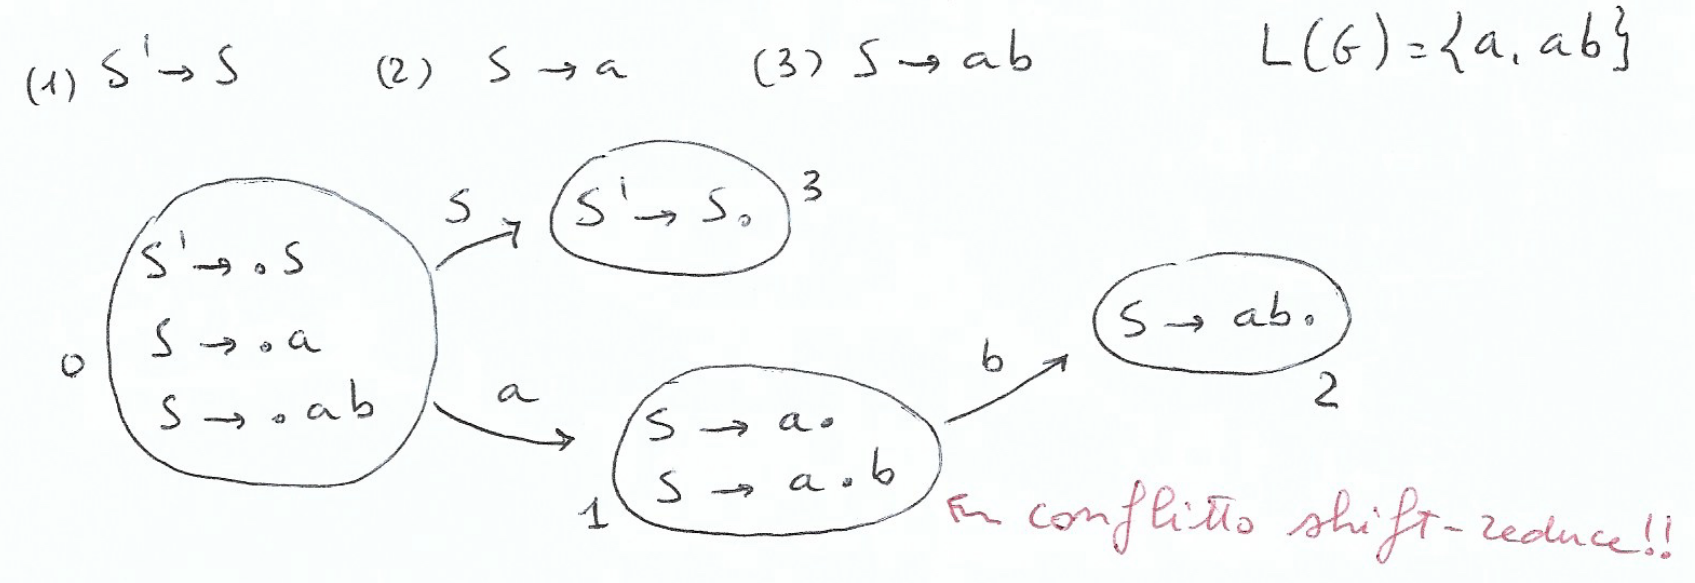 (1) S' → S (2) S → a (3) S → ab L(G) = {a, ab}
S S' → S. 3
S' → .S
S → .a
S → .ab
0
a
S → a.
S → a.b
1
b
S → ab.
2
conflitto shift-reduce!!